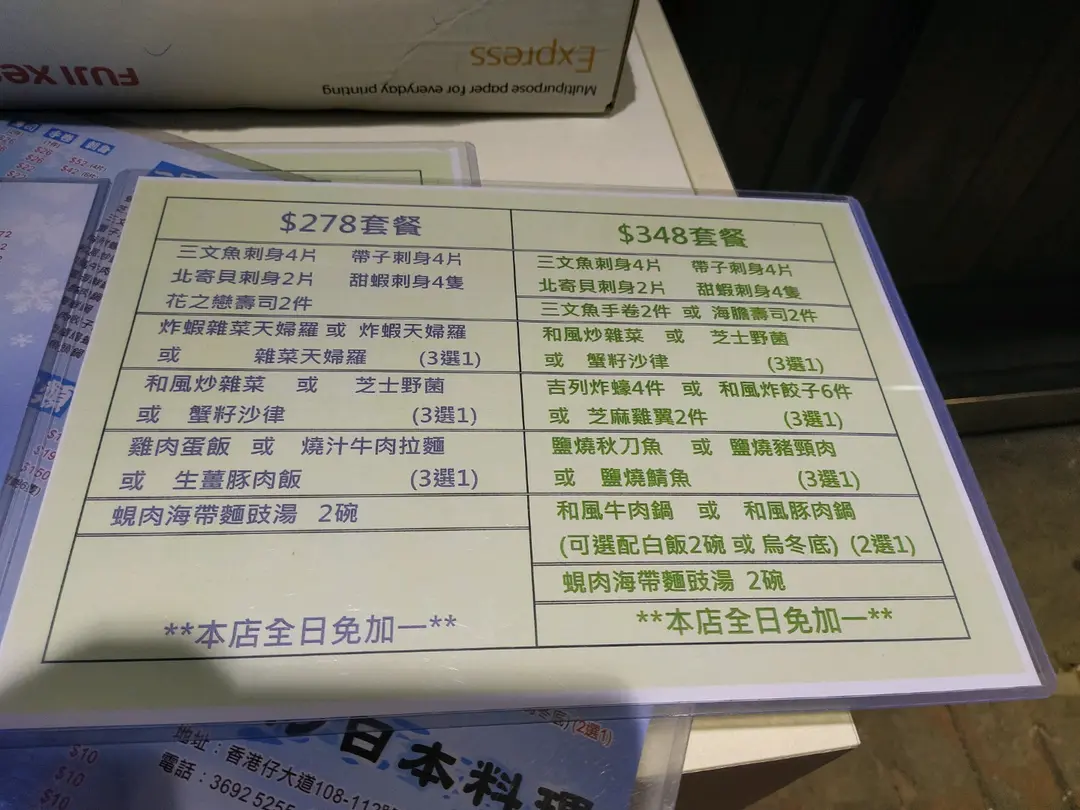 Multipurpose paper for everyday printing
Express
FUJI Xe
$278套餐
三文魚刺身4片 帶子刺身4片
北寄貝刺身2片 甜蝦刺身4隻
花之戀壽司2件
炸蝦雜菜天婦羅 或 炸蝦天婦羅
或 雜菜天婦羅 (3選1)
和風炒雜菜 或 芝士野菌
或 蟹籽沙律 (3選1)
雞肉蛋飯 或 燒汁牛肉拉麵
或 生薑豚肉飯 (3選1)
蜆肉海帶麵豉湯 2碗
**本店全日免加一**
$348套餐
三文魚刺身4片 帶子刺身4片
北寄貝刺身2片 甜蝦刺身4隻
三文魚手卷2件 或 海膽壽司2件
和風炒雜菜 或 芝士野菌
或 蟹籽沙律 (3選1)
吉列炸蠔4件 或 和風炸餃子6件
或 芝麻雞翼2件 (3選1)
鹽燒秋刀魚 或 鹽燒豬頸肉
或 鹽燒鯖魚 (3選1)
和風牛肉鍋 或 和風豚肉鍋
(可選配白飯2碗 或 烏冬底) (2選1)
蜆肉海帶麵豉湯 2碗
**本店全日免加一**
(2選1)
日本料理
地址：香港仔大道108-112
電話：3692 5255
$10
$10
$10